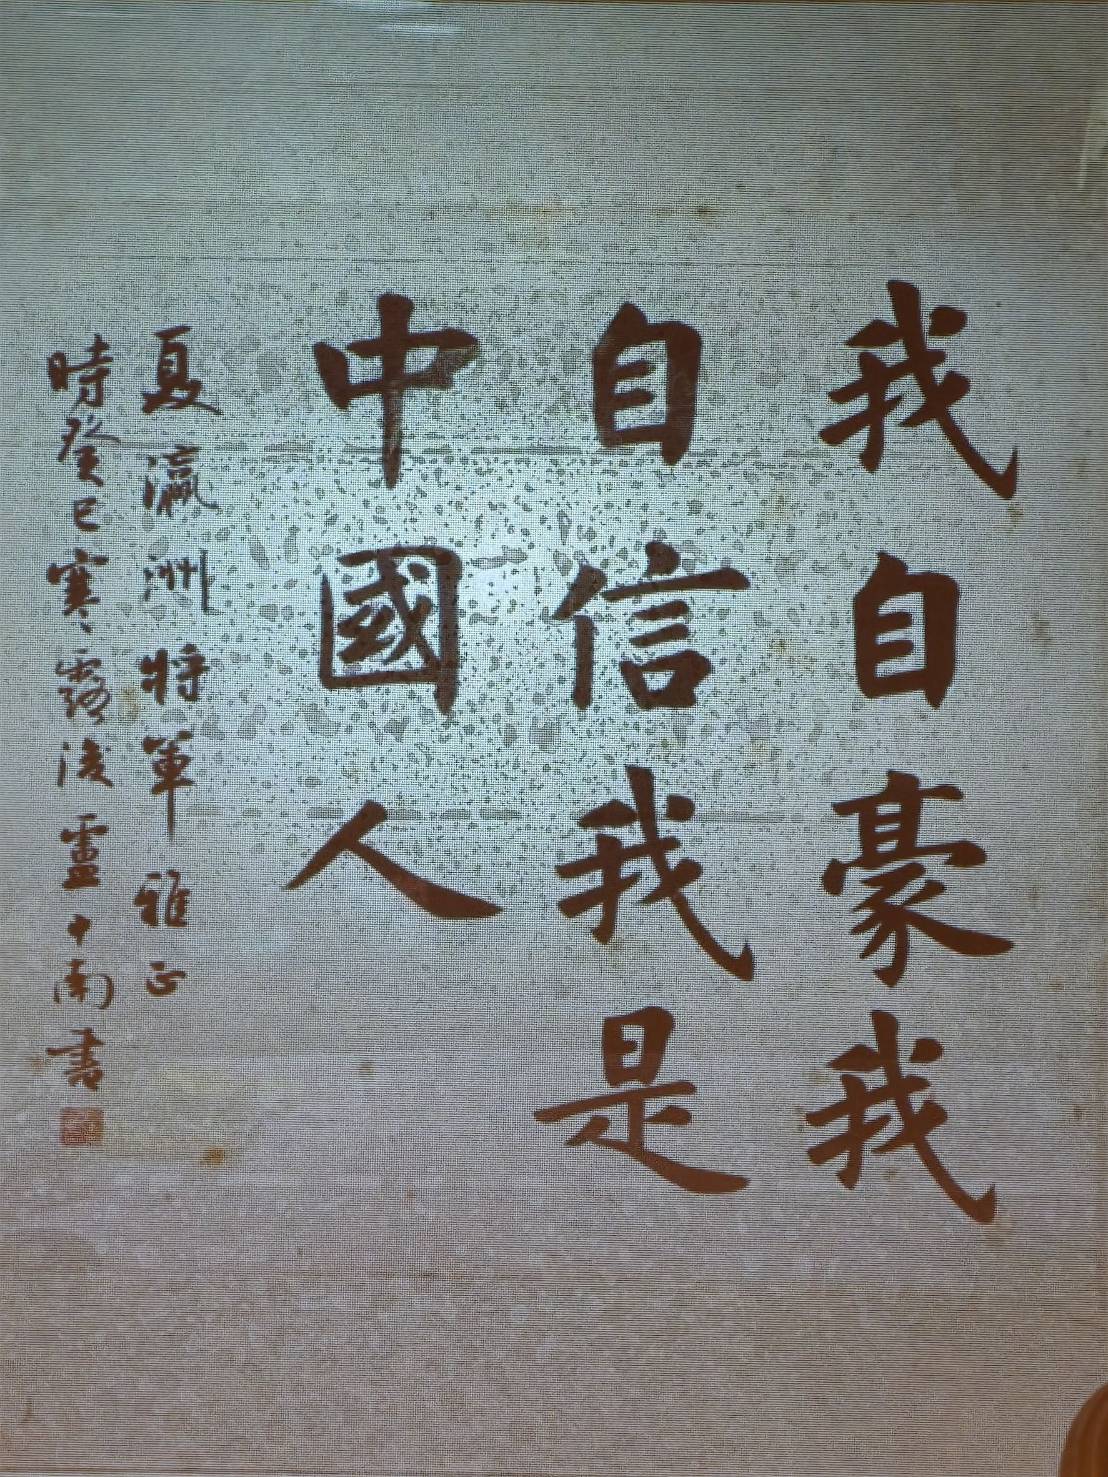 我自豪我
自信我是
中國人
夏瀛洲将軍雅正
時癸巳寒露後盧中南書